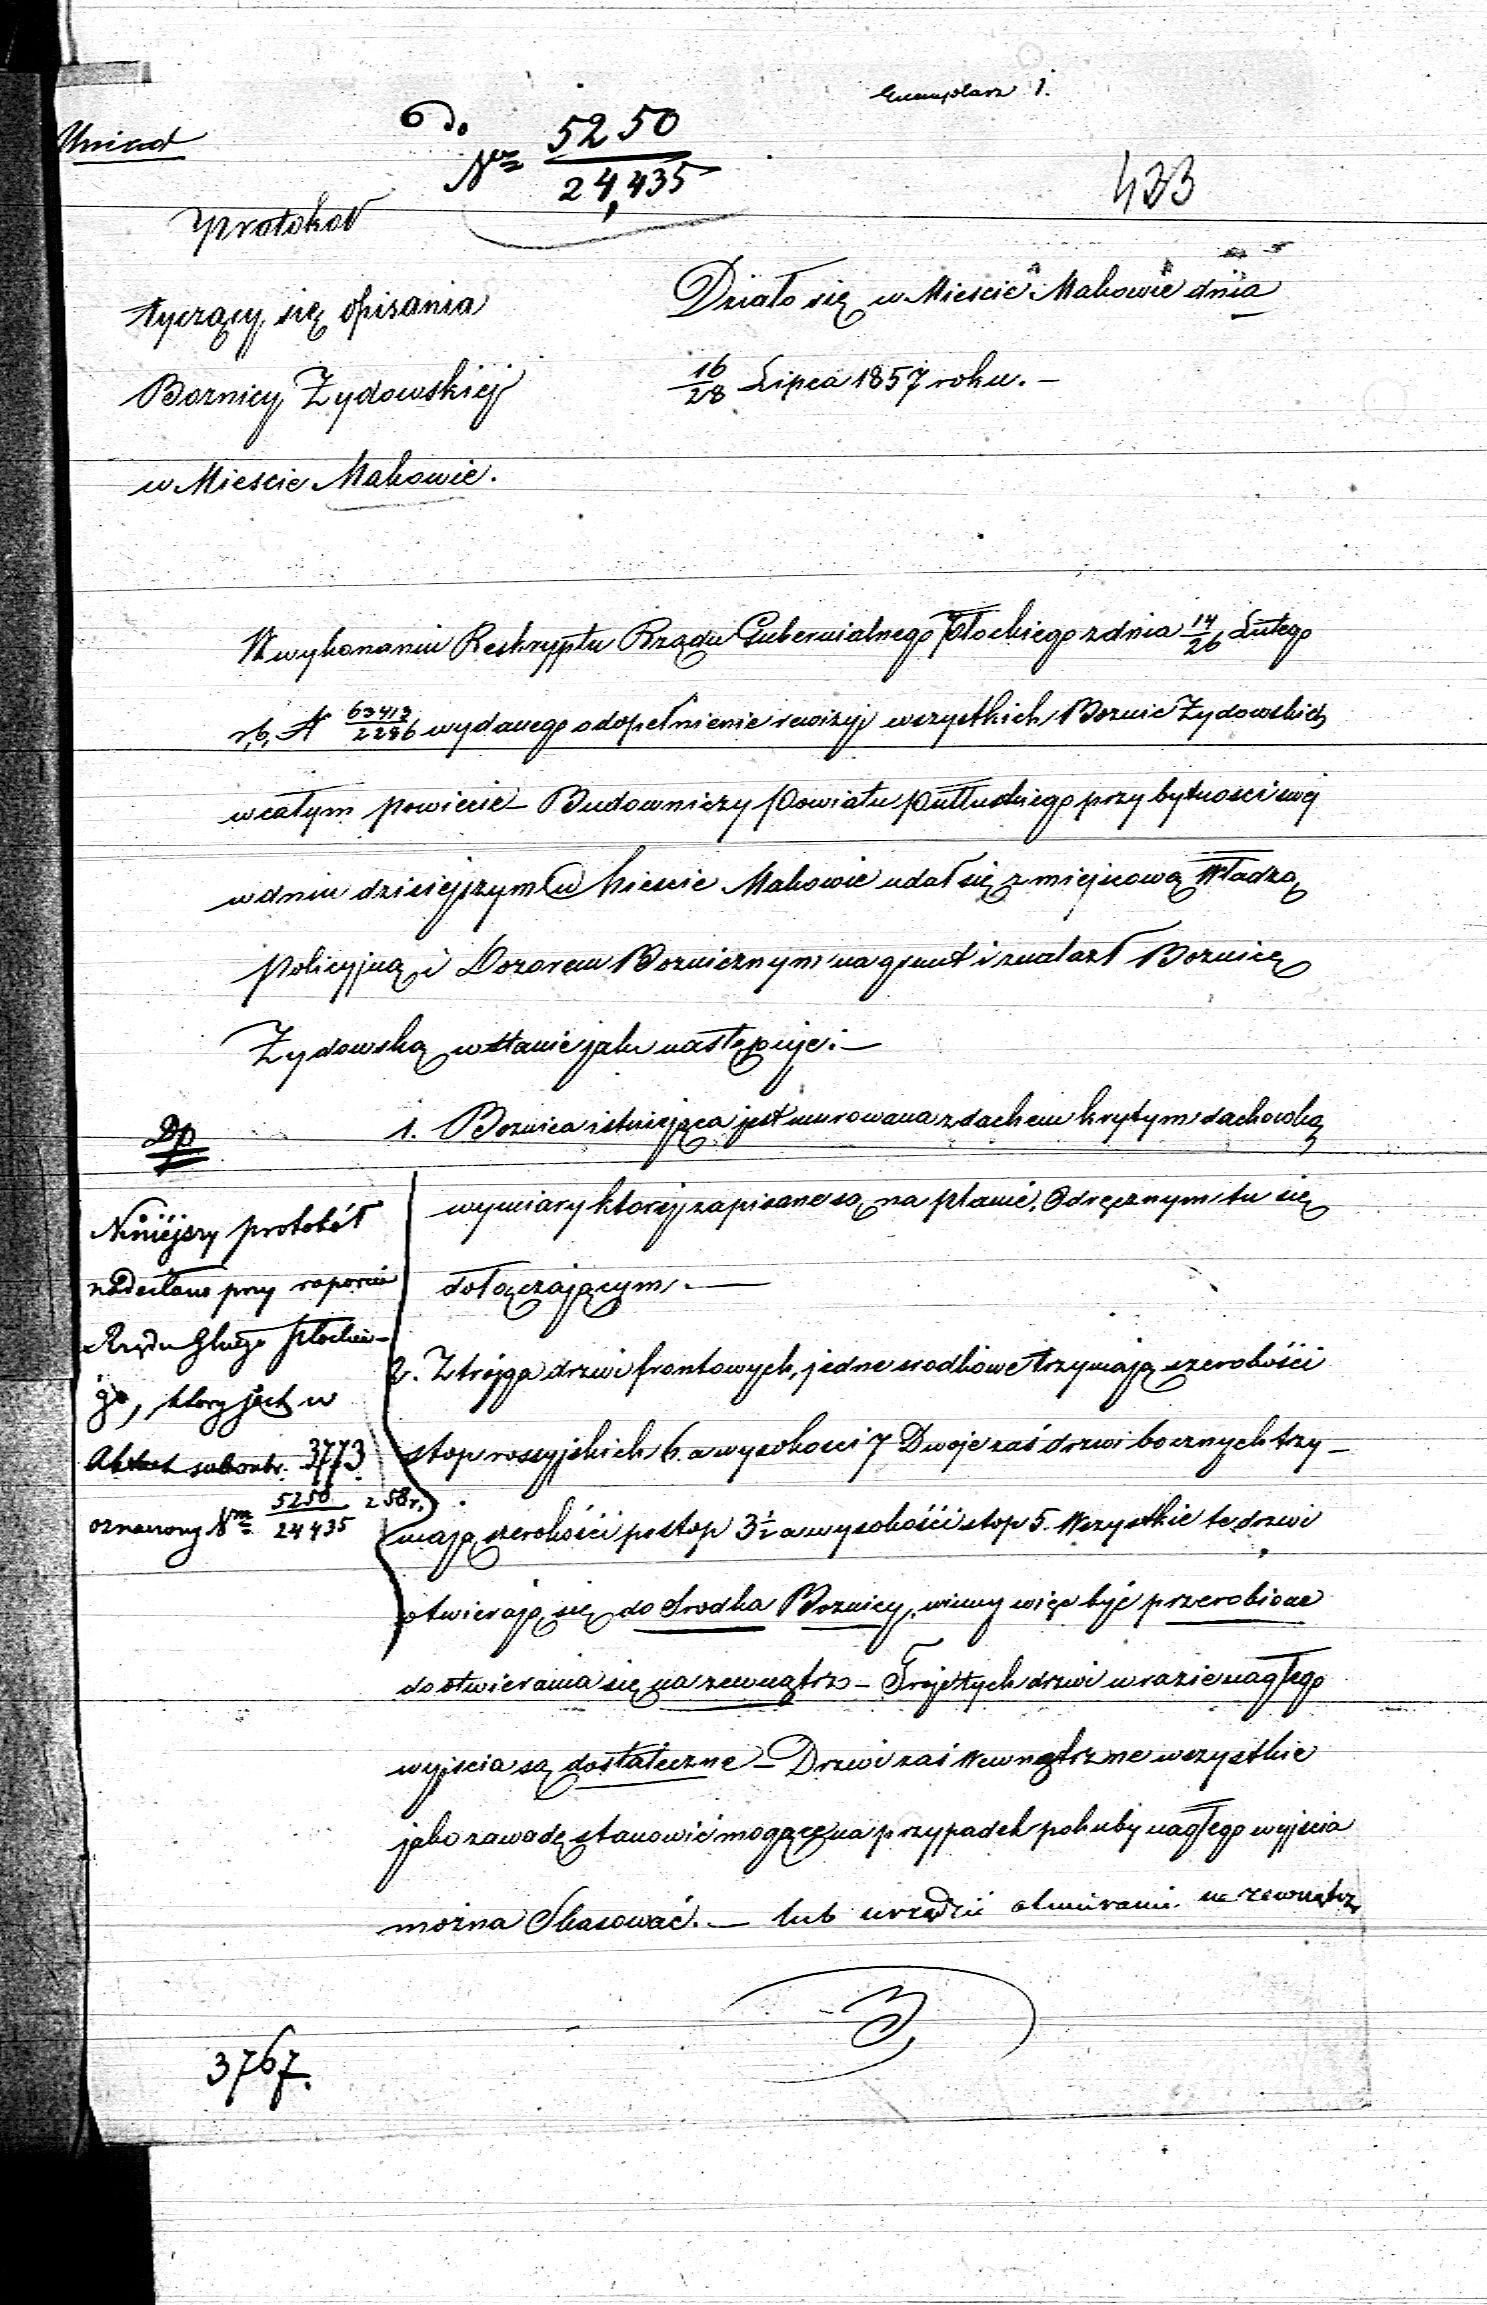 Exemplarz 1.
do
Nro 5250
24,435
433
Protokoł
tyczący się opisania
Boznicy Zydowskiej
w Miescie Makowie.
Działo się w Miescie Makowie dnia
16/28 Lipca 1857 roku. –
W wykonaniu Reskryptu Rządu Gubernialnego Płockiego z dnia 14/26 Lutego
r.b. N 63413/2286 wydanego o dopełnienie rewizyi wszystkich Boznic Zydowskich
w całym powiecie – Budowniczy Powiatu Pułtuskiego przy bytności swej
w dniu dzisiejszym w Miescie Makowie udał się z miejscową Władzą
Policyjną i Dozorem Boznicznym na grunt i znalazł Boznicę
Zydowską w stanie jak następuje: –
1. Boznica istniejąca jest murowana z dachem krytym dachowką
wymiary ktorej zapisane są na planie Odręcznym tu się
dołączającym. –
2. Z trojga drzwi frontowych, jedne srodkowe trzymają szerokości
stop rossyjskich 6. a wysokosci 7 Dwoje zaś drzwi bocznych trzy-
mają szerokości po stop 3½ a wysokości stop 5. Wszystkie te drzwi
otwierają się do Srodka Boznicy, winny więc być przerobione
do otwierania się na zewnątrz – Troje tych drzwi w razie nagłego
wyjscia są dostateczne – Drzwi zaś wewnętrzne wszystkie
jako zawadę stanowić mogące na przypadek potrzeby nagłego wyjscia
można Skasować. – lub urządzić otwieranie na zewnątrz
Niniejszy protokół
nadesłano przy raporcie
Rządu Głnego Płockie-
go, ktory jest w
Aktach 3773
oznaczony Nrm 5250/24435 z 58 r.
3767.